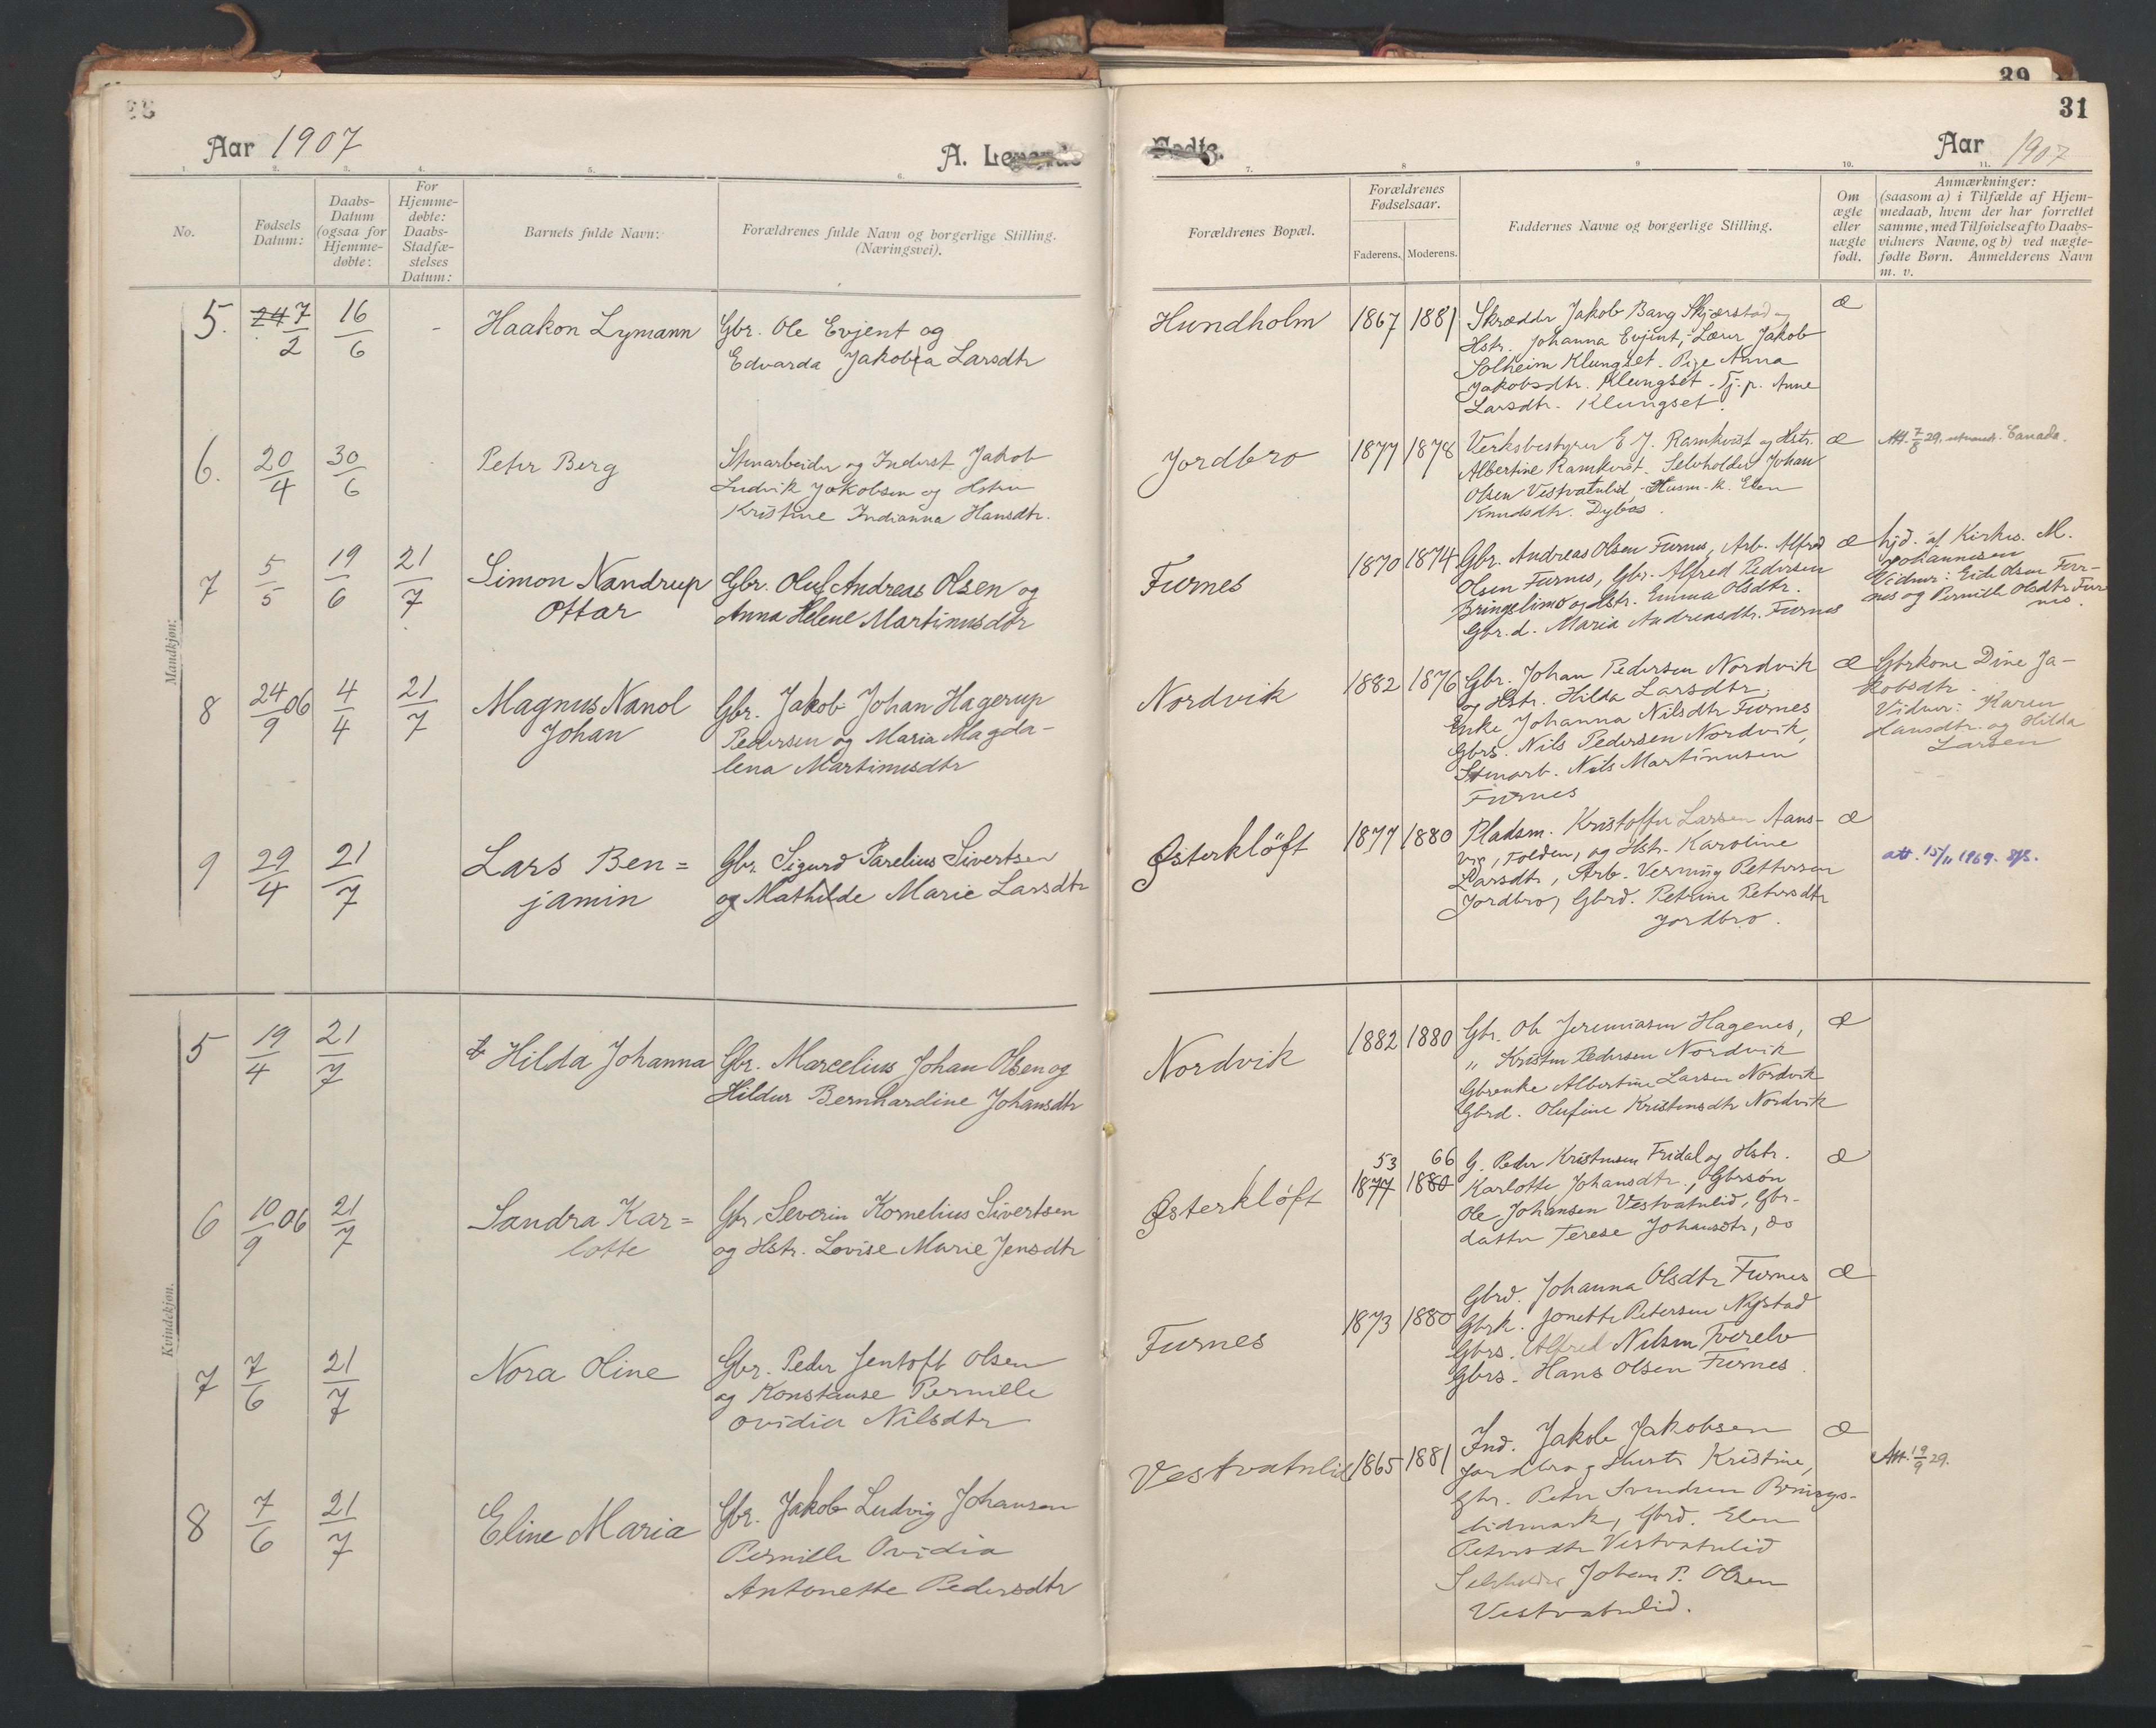 31
Aar 1907
A. Levende
Fødte.
Aar 1907
1. 2. 3. 4. 5. 6. 7. 8 9 10. 11.
No.
Fødsels Datum:
Daabs-Datum (ogsaa for Hjemme-døbte:
For Hjemme-døbte: Daabs-Stadfæ-stelses Datum:
Barnets fulde Navn:
Forældrenes fulde Navn og borgerlige Stilling. (Næringsvei).
Forældrenes Bopæl.
Forældrenes Fødselsaar.
Faderens. Moderens.
Faddernes Navne og borgerlige Stilling.
Om ægte eller uægte født.
Anmærkninger:
(saasom a) i Tilfælde af Hjem-
medaab, hvem der har forrettet
samme, med Tilføielse af to Daabs-
vidners Navne, og b) ved uægte-
fødte Børn. Anmelderens Navn
m. v.
Mandkjøn:
5. 24 7/2 16/6 - Haakon Lymann
Gbr. Ole Evjent og
Edvarda Jakobia Larsdtr
Hundholm 1867 1881
Skrædder Jakob Bang Skjærstad og
Hstr. Johanna Evjent, Lærer Jakob
Solheim Klungset. Pige Anna
Jakobsdtr. Klungset. Tj. p. Anne
Larsdtr. Klungset.
æ
6. 20/4 30/6 Peter Berg
Stenarbeider og Inderst Jakob
Ludvik Jakobsen og Hstru
Kristine Indianna Hansdtr.
Jordbro 1877 1878
Verksbestyrer E. J. Ramkvist og Hstr.
Albertine Ramkvist. Selvholder Johan
Olsen Vestvatnlid, Husm. k. Elen
Knudsdtr. Dybos.
æ
Att. 7/8 29. Canada.
7 5/5 19/6 21/7 Simon Nandrup
Ottar
Gbr. Oluf Andreas Olsen og
Anna Helene Martinusdtr
Furnes 1870 1874
Gbr. Andreas Olsen Furnes, Arb. Alfred
Olsen Furnes, Gbr. Alfred Pedersen
Bringslimo og Hstr. Emma Olsdtr.
Gbr.d. Maria Andreasdtr. Furnes
æ
hjd. af Kirkes. M.
Johannesen
Vidner: Eide Olsen Fur-
nes og Pernille Olsdtr Fur
nes.
8 24/9 06 4/4 21/7 Magnus Nanol
Johan
Gbr. Jakob Johan Hagerup
Pedersen og Maria Magda-
lena Martinusdtr
Nordvik 1882 1876
Gbr. Johan Pedersen Nordvik
og Hstr. Hilda Larsdtr,
Enke Johanna Nilsdtr Furnes
Gbrs. Nils Pedersen Nordvik,
Stenarb. Nils Martinusen
Furnes
æ
Gbrkone Dine Ja-
kobsdtr.
Vidner: Karen
Hansdtr. og Hilda
Larsen
9 29/4 21/7 Lars Ben=
jamin
Gbr. Sigurd Parelius Sivertsen
og Mathilde Marie Larsdtr
Østerkløft 1877 1880
Pladsm. Kristoffer Larsen Aans-
vig, Folden, og Hstr. Karoline
Larsdtr, Arb. Verning Pettersen
Jordbro, Gbrd. Petrine Petersdtr
Jordbro.
æ
att. 15/11 1969.
Kvindekjøn.
5 19/4 21/7 Hilda Johanna
Gbr. Marcelius Johan Olsen og
Hildur Bernhardine Johansdtr
Nordvik 1882 1880
Gbr. Ole Jeremiasen Hagenes,
" Kristen Pedersen Nordvik
Gbrenke Albertine Larsen Nordvik
Gbrd. Olufine Kristensdtr Nordvik
æ
6 10/9 06 21/7 Sandra Kar=
lotte
Gbr. Severin Kornelius Sivertsen
og Hstr. Lovise Marie Jensdtr
Østerkløft 53 1877 66 1880
G. Peder Kristensen Fridal og Hstr.
Karlotte Johansdtr., Gbrsøn
Ole Johansen Vestvatnlid, Gbr-
datter Terese Johansdtr, do
æ
7 7/6 21/7 Nora Oline
Gbr. Peder Jentoft Olsen
og Konstanse Pernille
Ovidia Nilsdtr
Furnes 1873 1880
Gbrd. Johanna Olsdtr Furnes
Gbrk. Jonette Petersen Nystad
Gbrs. Alfred Nilsen Tverelv
Gbrs. Hans Olsen Furnes.
æ
8 7/6 21/7 Eline Maria
Gbr. Jakob Ludvig Johansen
Pernille Ovidia
Antonette Pedersdtr
Vestvatnlid 1865 1881
Ind. Jakob Jakobsen
Jordbro, Hustr Kristine,
Gbr. Peter Svendsen Brings-
lidmark, Gbrd. Elen
Petersdtr Vestvatnlid
Selvholder Johan P. Olsen
Vestvatnlid.
æ
Att. 19/9 29.